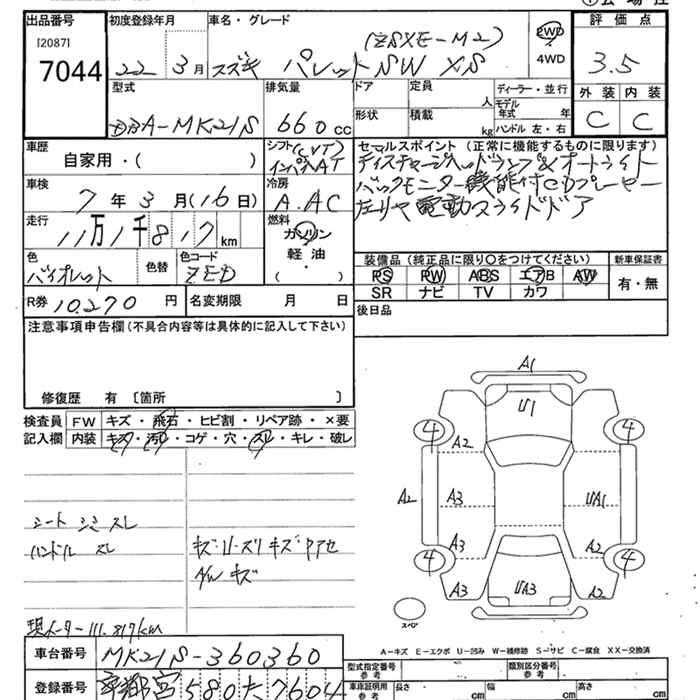 出品番号 初度登録年月 車名・グレード 評価点
[2087]
7044
22年 3月 スズキ パレットSW XS
(ZSXE-M2)
2WD
4WD
3.5
外装 内装
C C
型式
DBA-MK21S
排気量
660cc
ドア 定員 人
形状 積載 kg
ディーラー・並行
モデル年式 年
ハンドル 左・右
車歴
自家用・( )
シフト(CVT)
インパネAT
セールスポイント (正常に機能するものに限ります)
ディスチャージヘッドランプ&オートライト
バックモニター機能付CDプレーヤー
左リヤ電動スライドドア
車検
7年3月(16日)
冷房
A.AC
走行
11万1千817km
燃料
ガソリン
軽油・
( )
色
バイオレット
色替
色コード
ZED
装備品 (純正品に限り〇をつけてください) 新車保証書
PS PW ABS エアB AW
SR ナビ TV カワ
有・無
R券 10,270円 名変期限 月 日
後日品
注意事項申告欄(不具合内容等は具体的に記入して下さい)
修復歴 有 [箇所 ]
検査員 FW キズ・飛石・ヒビ割・リペア跡・×要
記入欄 内装 キズ・汚れ・コゲ・穴・スレ・キレ・破レ
シート シミ スレ
ハンドル スレ
キズ・U・ズリキズ
A/W キズ
現メーター111.817km
A1
U1
4 4
A2
A2 A3 UA1
A3 A2
4 4
A3 UA3 A2
スペア
A-キズ E-エクボ U-凹み W-補修跡 S-サビ C-腐食 XX-交換済
車台番号 MK21S-360360
登録番号 宇都宮580た7604
型式指定番号 参考 類別区分番号 参考
車庫証明用 参考 長さ cm 幅 cm 高さ cm